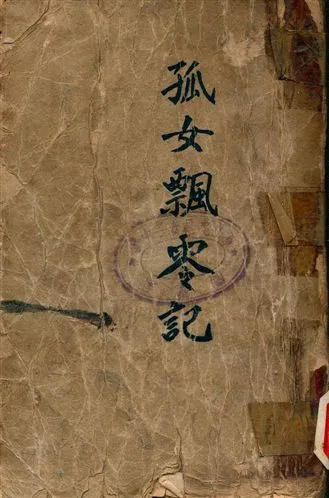 孤女飄零記